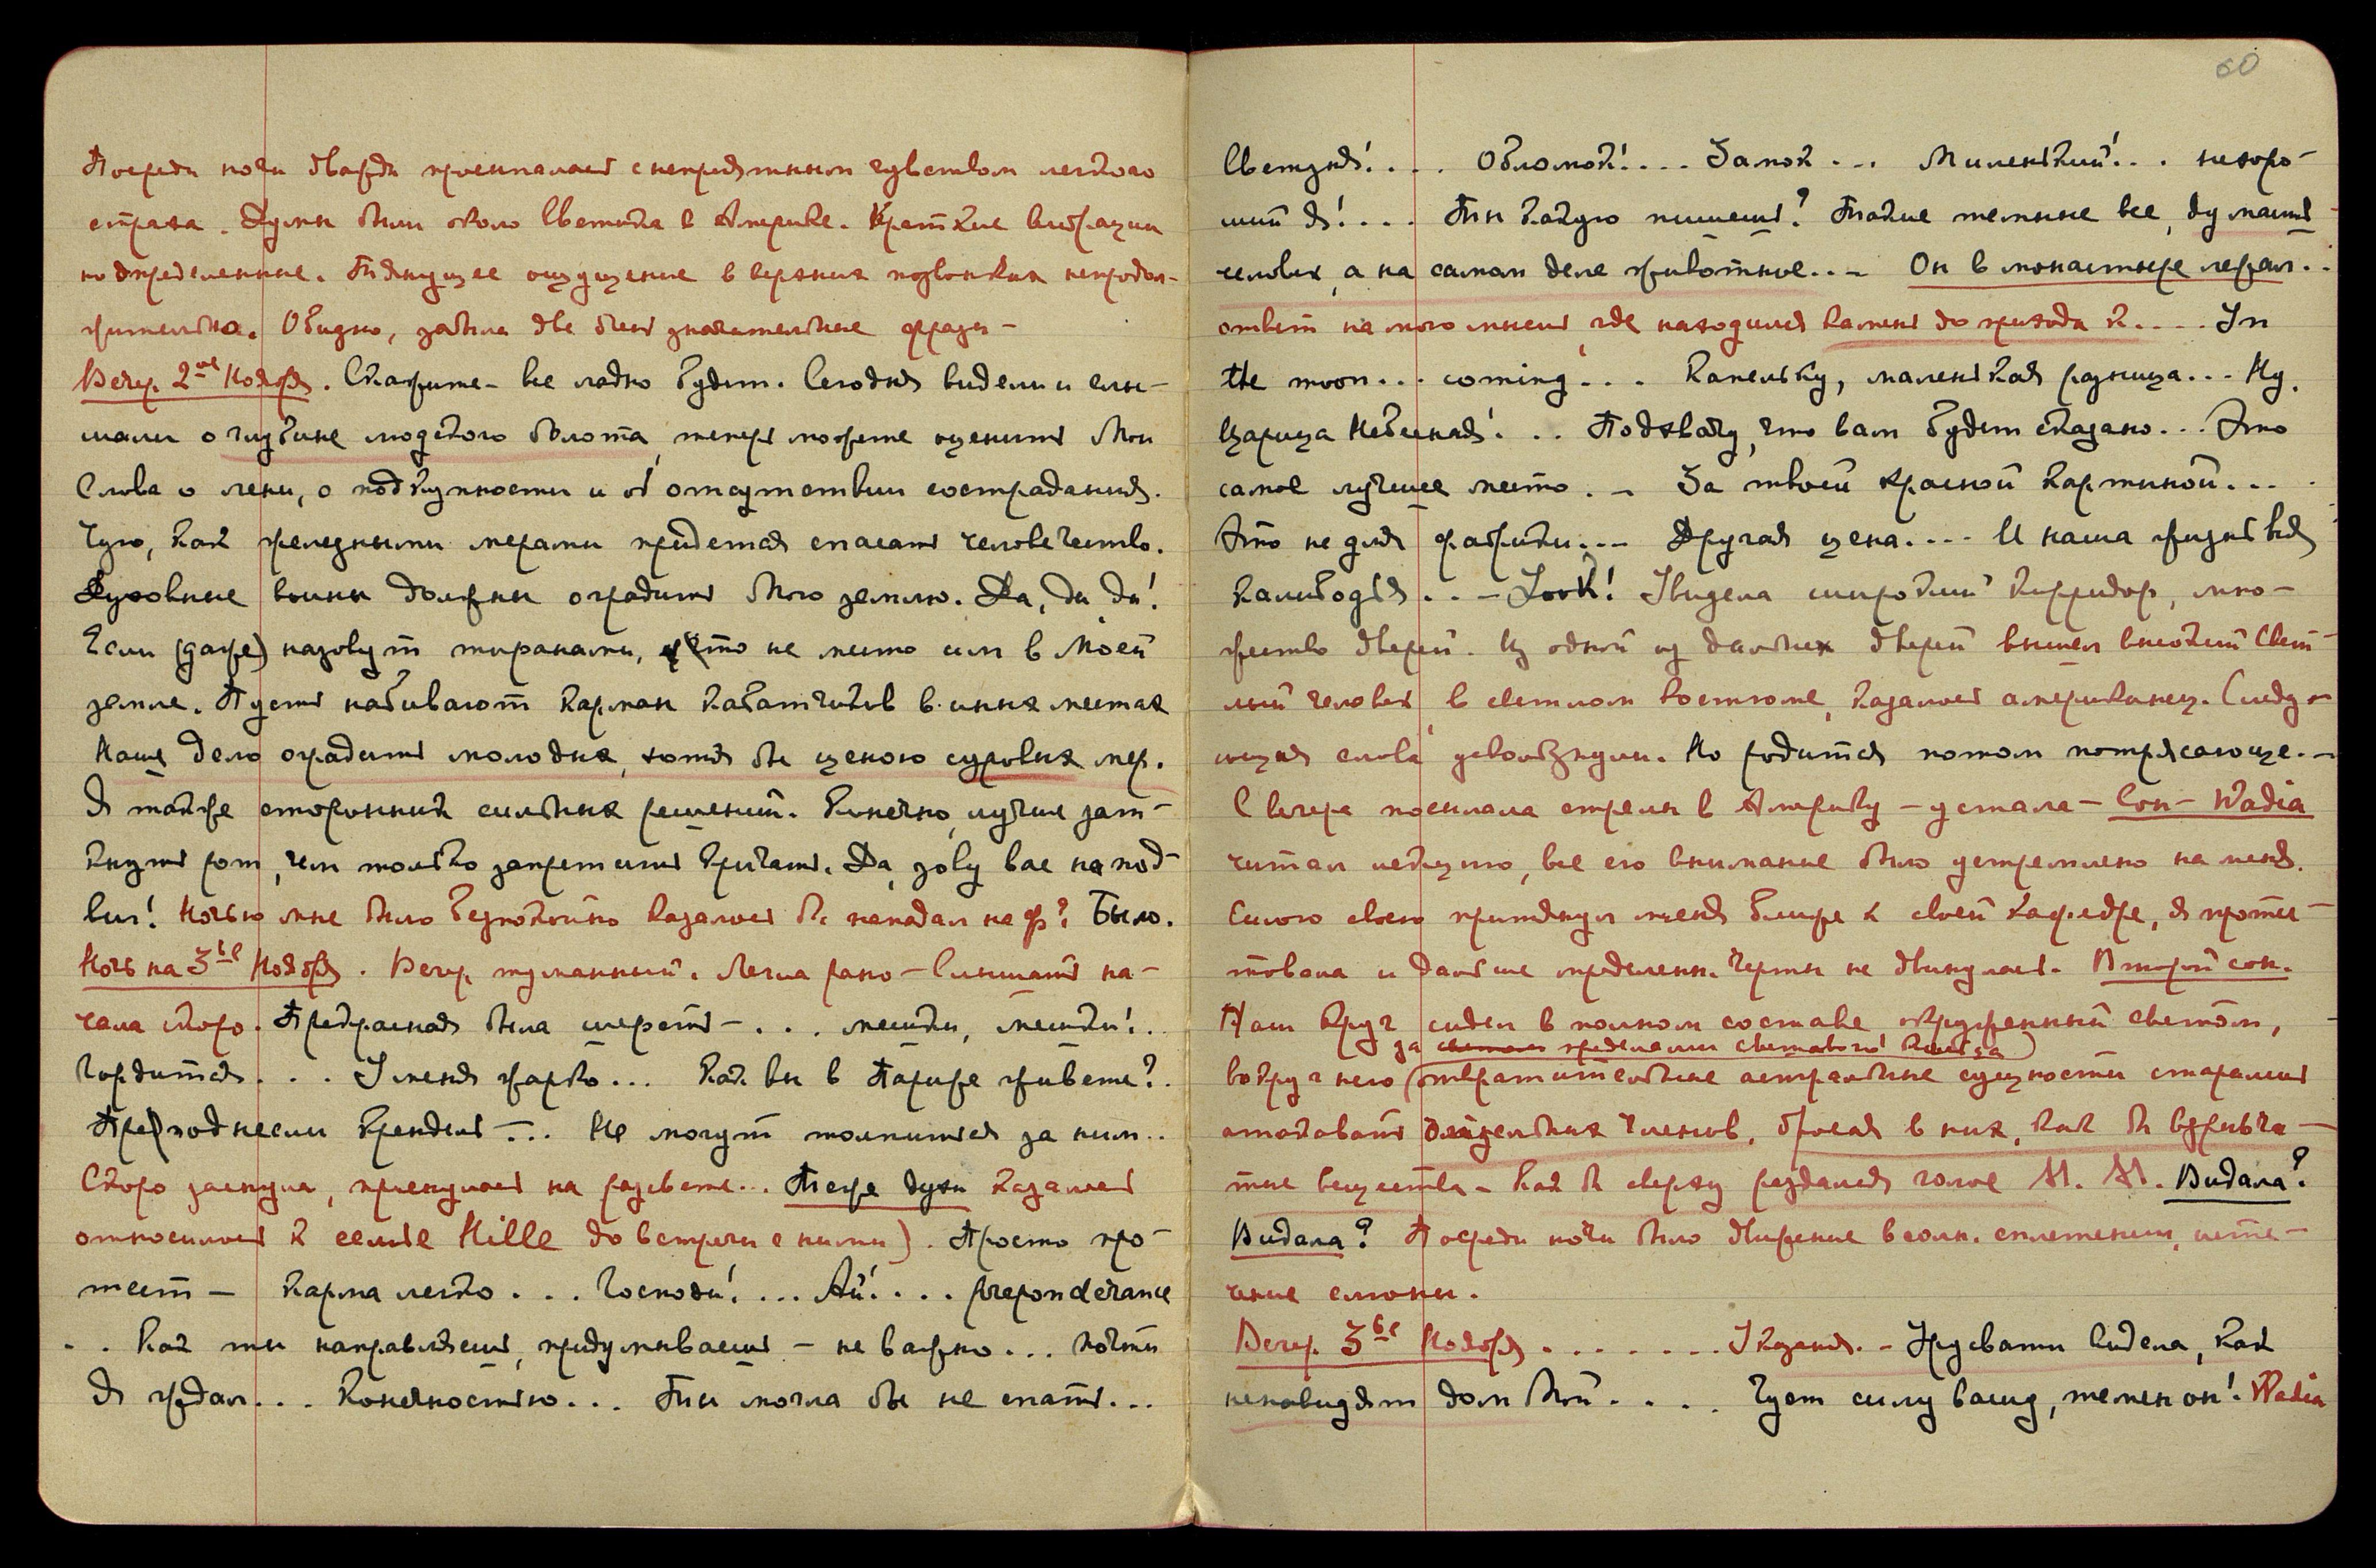 60
Посреди ночи дважды просыпалась с неприятным чувством легкого
страха. Думы были около Светика в Америке. Краткие вибрации
неопределенные. Тянущее ощущение в верхних позвонках непродол-
жительно. Обидно, забыла две очень значительные фразы –
Вечер. 2ое Ноября. Скажите – все ладно будет. Сегодня видели и слы-
шали о глубине людского болота, теперь можете оценить Мои
Слова о лени, о подкупности и об отсутствии сострадания.
Чую, как железными мерами придется спасать человечество.
Духовные воины должны оградить Мою землю. Да, да, да!
Если (даже) назовут тиранами, что не место им в Моей
земле. Пусть набивают карман кабатчиков в иных местах
Наше дело оградить молодых, хотя бы ценою суровых мер.
Я также сторонник сильных решений. Конечно, лучше зат-
кнуть рот, чем только запретить кричать. Да, зову вас на под-
виг! Ночью мне было беспокойно казалось бы нападал на ф? Было.
Ночь на 3ье Ноября. Вечер. туманный. Легла рано – Слышать на-
чала скоро. Прекрасная была шерсть – . . . мешки, мешки!..
Гордится . . . У меня жарко... Как вы в Париже живете?.
Преподнесли крендель – ... Не могут толпиться за ним..
Скоро заснула, проснулась на рассвете... Тоже духи казалось
относилось к семье Hille до встречи с ними). Просто про-
тест – карма легко . . . Господи! ... Ай! . . . préponderance
. . Как ты направляешь, придумываешь – не важно ... почти
Я ждал . . . Конечностью ... Ты могла бы не спать ...
Светуня! . . . . Обломок! . . . . Замок . . . Миленький! . . . нехоро-
ший я! . . . . Ты какую пишешь? Такие темные все, думаешь
человек, а на самом деле животное.. – Он в монастыре лежал. .
ответ на мою мысль, где находился камень до прихода к. . . . In
the moon . . . coming . . . . Капельку, маленькая разница ... Ну,
Царица Небесная! . . . Подхвачу, что вам будет сказано... Это
самое лучшее место . – За твоей красной картиной ...
Это не для фабрики ... – Другая цена. ... И наша жизнь вся
калибодья . . – Look! Увидела широкий корридор, мно-
жество дверей. Из одной из дальних дверей вышел высокий свет-
лый человек, в светлом костюме, казалось американец. Следу-
ющия слова ускользнули. Но родится потом потрясающе. –
С вечера посылала стрелы в Америку – устала – Сон – Wadia
читал лекцию, все его внимание было устремлено на меня.
Силою своею притянул меня ближе к своей кафедре, я проте-
стовала и дальше определен. черты не двинулась. Второй сон.
Наш Круг сидел в полном составе, окруженный светом,
за светом пределами светового кольца
вокруг него отвратительные астральные сущности старались
атаковать отдельных членов, бросая в них, как бы взрывча-
тые вещества – как бы сверху раздался голос М. М. Видала?
Видала? Посреди ночи было движение в солн. сплетении, исте-
чение слюны.
Вечер. 3ье Ноября . . . . . . . Указания. – Урусвати видела, как
ненавидят дом Мой . . . . Чует силу вашу, темен он! Wadia